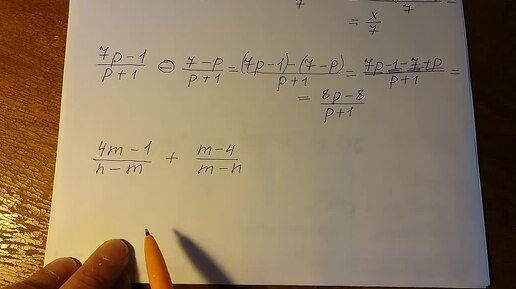 7
= x/7
(7p-1)/(p+1) ⊖ (7-p)/(p+1) = ((7p-1)-(7-p))/(p+1) = (7p-1-7+p)/(p+1) =
= (8p-8)/(p+1)
(4m-1)/(n-m) + (m-4)/(m-n)